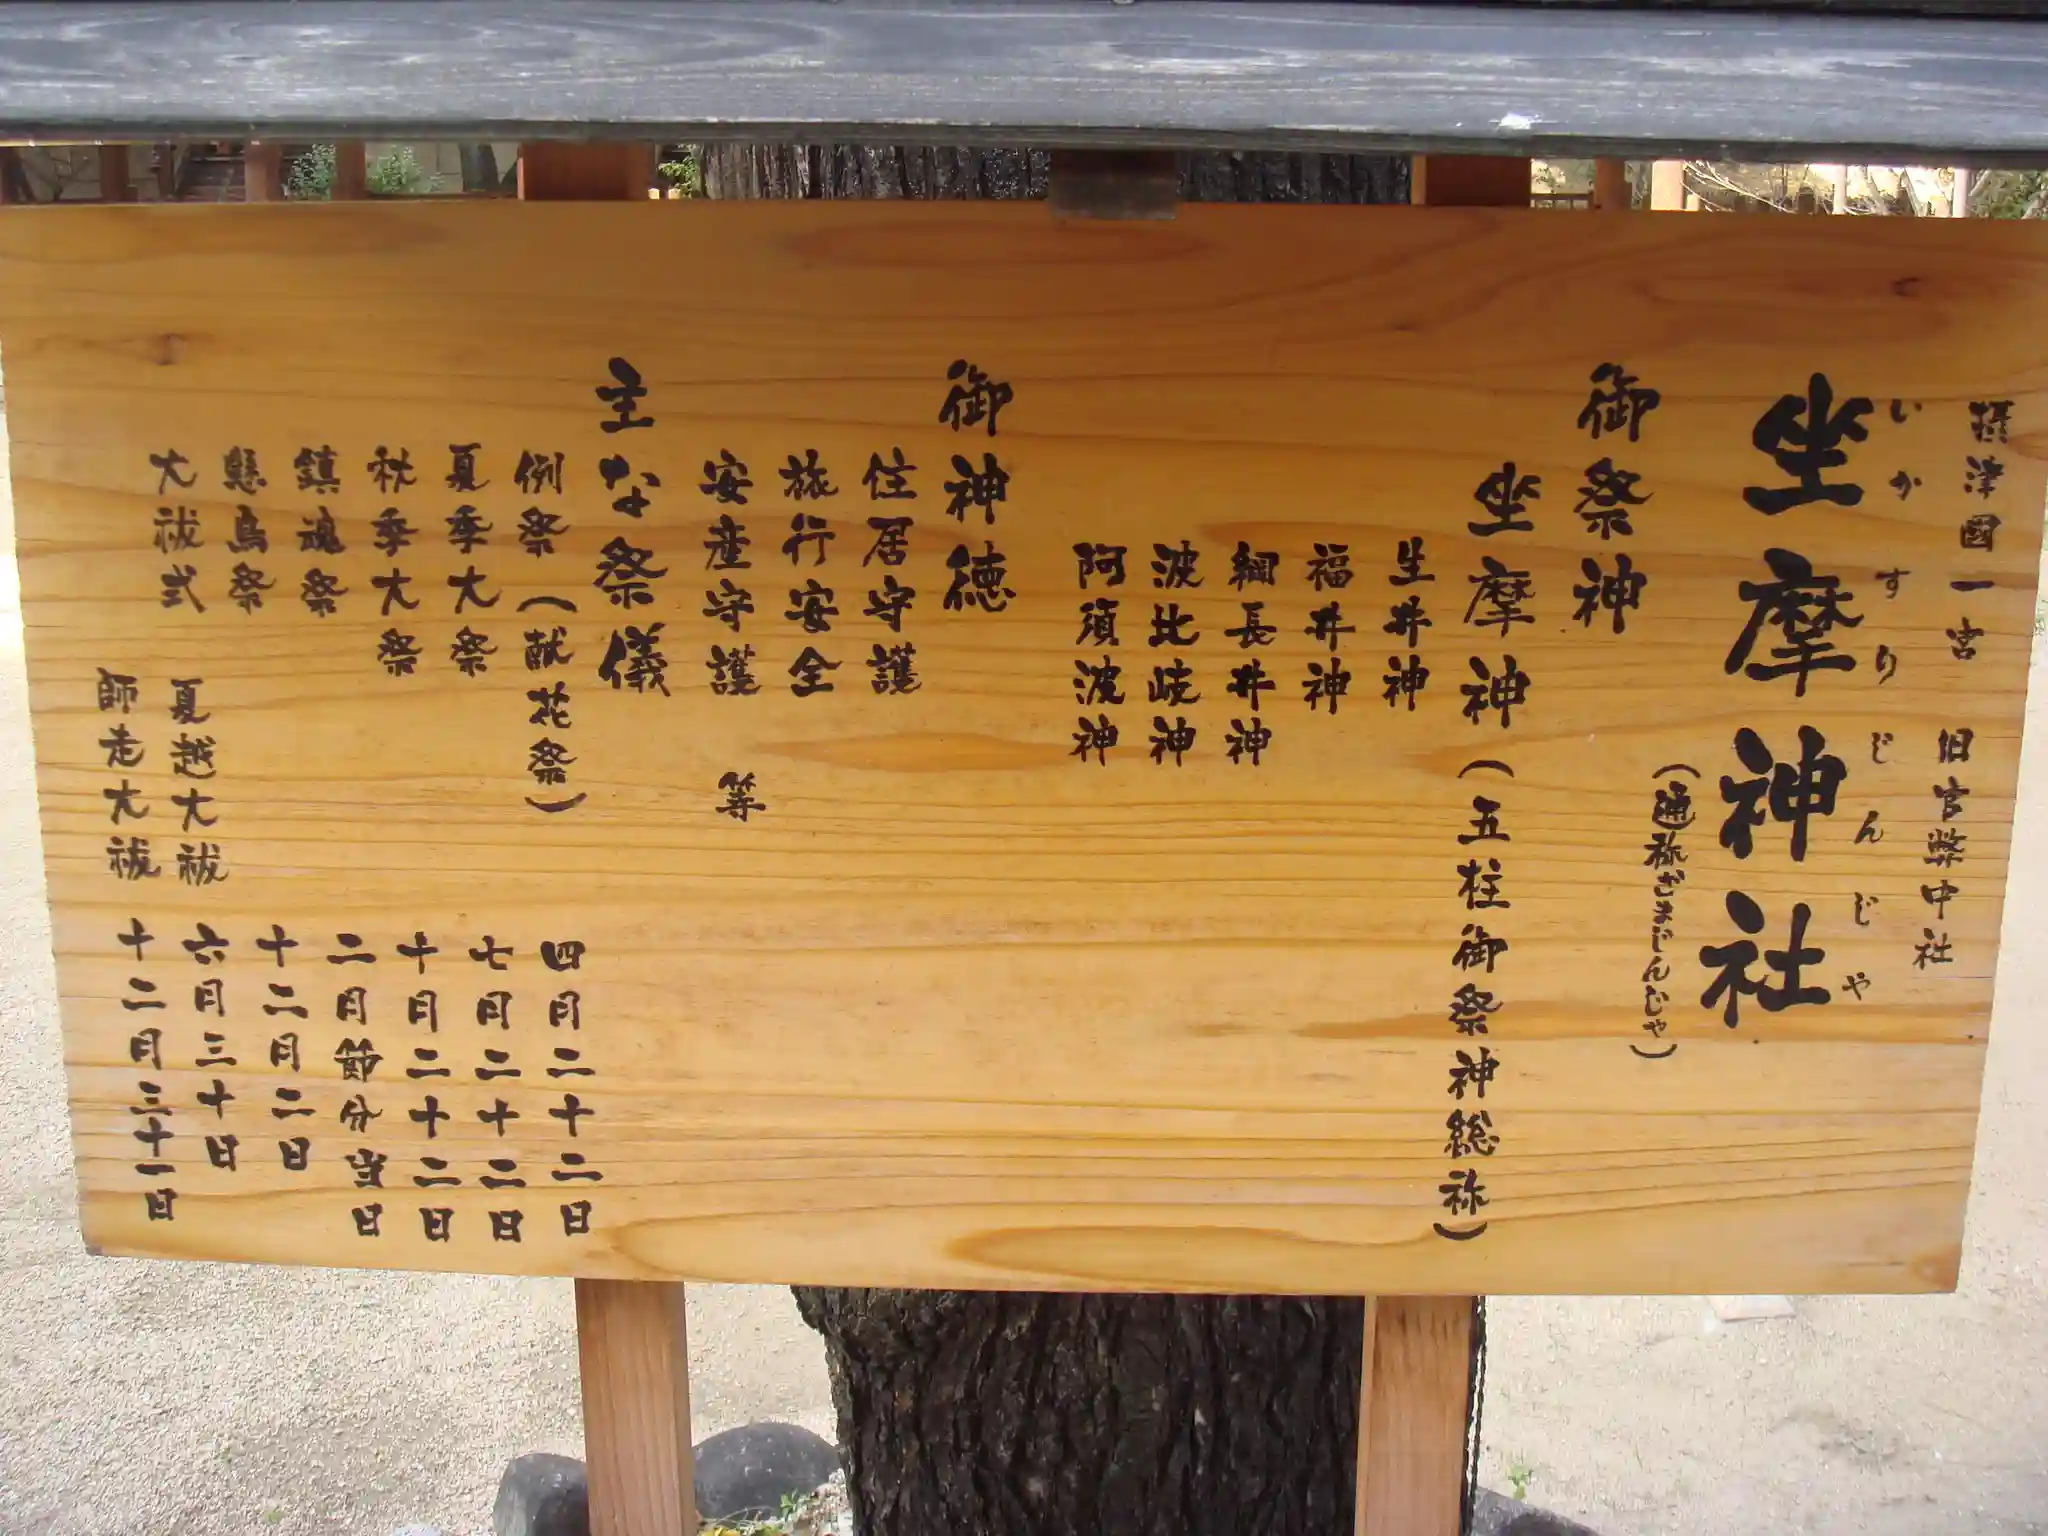 摂津國一宮 旧官幣中社
坐摩神社
いかすりじんじゃ
(通称ざまじんじゃ)
御祭神
坐摩神(五柱御祭神総称)
生井神
福井神
綱長井神
波比岐神
阿須波神
御神徳
住居守護
旅行安全
安産守護 等
主な祭儀
例祭(献花祭) 四月二十二日
夏季大祭 七月二十二日
秋季大祭 十月二十二日
鎮魂祭 二月節分当日
懸鳥祭 十二月二日
大祓式 夏越大祓 六月三十日
師走大祓 十二月三十一日